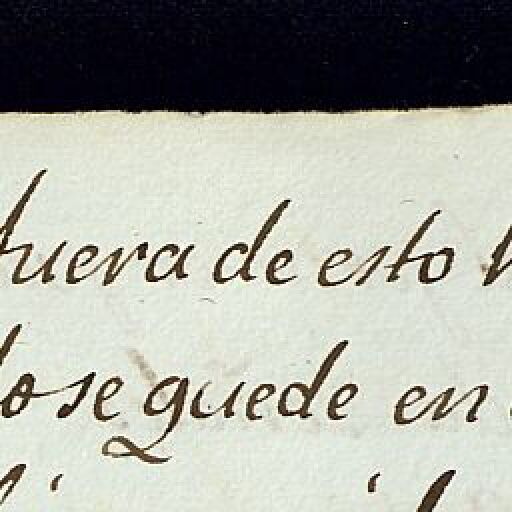 fuera de esto
se quede en